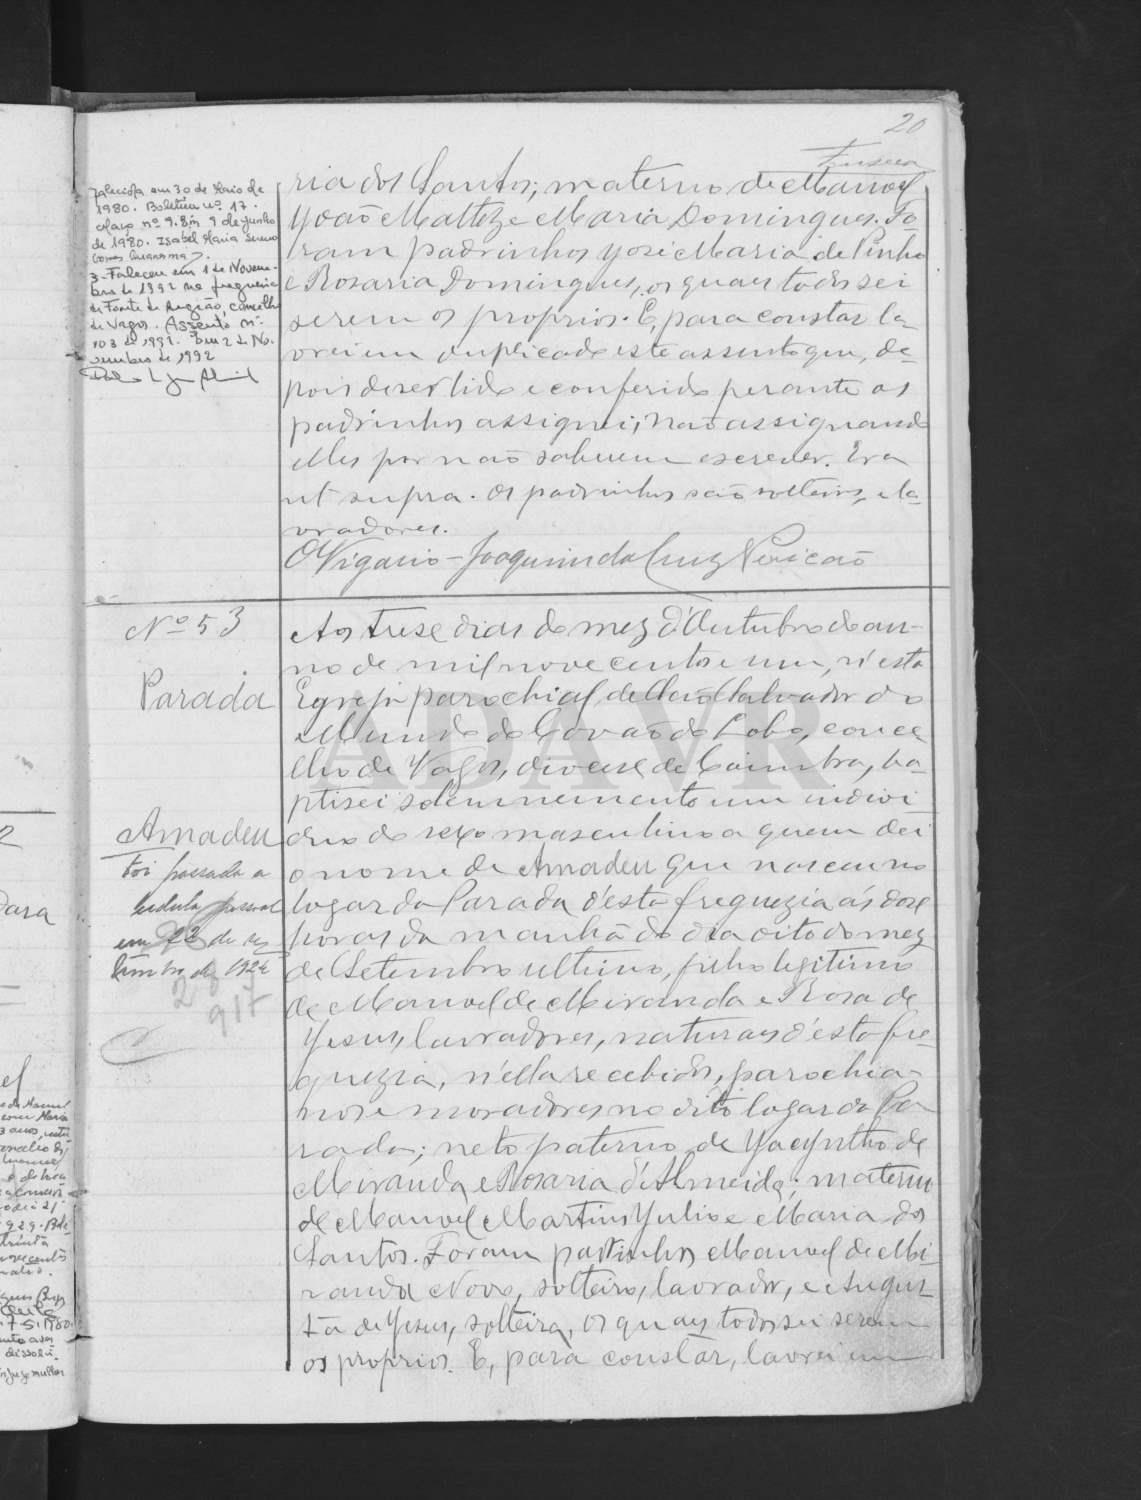 20
Fonseca
Falecida em 30 de Maio de
1980. Boletim nº 17.
Maço nº 9. Em 9 de Junho
de 1980. Isabel Maria
3 - Faleceu em 1 de Novem-
bro de 1992 na freguesia
de Fonte de Angião, concelho
de Vagos. Assento nº
103 de 1992. Em 2 de No-
vembro de 1992
ria dos Santos; materno de Manoel
João Maltez e Maria Domingues. Fo-
ram padrinhos José Maria de Pinho
e Rosaria Domingues, os quaes todos sei
serem os proprios. E, para constar la-
vrei em duplicado este assento que, de-
pois de ser lido e conferido perante os
padrinhos assignei, não assignando
elles por não saberem escrever. Era
ut supra. Os padrinhos são solteiros, e la-
vradores.
O Vigario - Joaquim da Cruz Pericão
Nº 53
Parada
Amadeu
Foi passada a
cedula pessoal
em 22 de se
tembro de 1924
917
Aos treze dias do mez d'Outubro do an-
no de mil nove centos e um, n'esta
Egreja parochial de São Salvador do
Mundo do Covão do Lobo, conce
lho de Vagos, diocese de Coimbra, ba-
ptisei solemnemente um indivi
duo do sexo masculino a quem dei
o nome de Amadeu que nasceu no
logar da Parada d'esta freguezia ás doze
horas da manhã do dia oito do mez
de Setembro ultimo, filho legitimo
de Manoel de Miranda e Rosa de
Jesus, lavradores, naturaes d'esta fre-
guezia, n'ella recebidos, parochia-
nos e moradores no dito logar da Pa
rada; neto paterno de Jacyntho de
Miranda e Rosaria d'Almeida; materno
de Manoel Martins Julio e Maria dos
Santos. Foram padrinhos Manoel de Mi-
randa Novo, solteiro, lavrador, e Augus-
ta de Jesus, solteira, os quaes todos sei serem
os proprios. E, para constar, lavrei em
ADAVR